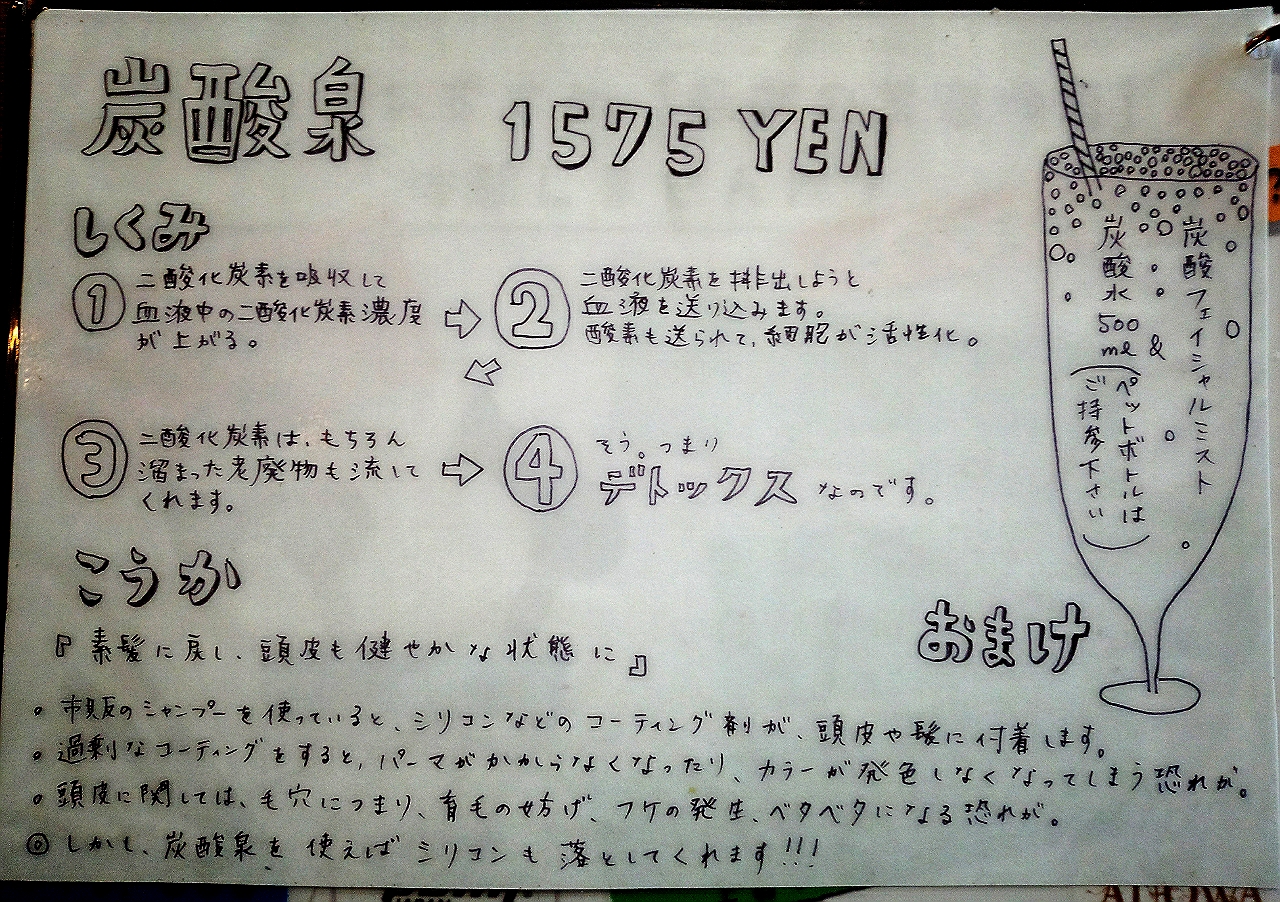 炭酸泉 1575 YEN
しくみ
① 二酸化炭素を吸収して
血液中の二酸化炭素濃度
が上がる。
⇨
② 二酸化炭素を排出しようと
血液を送り込みます。
酸素も送られて、細胞が活性化。
③ 二酸化炭素は、もちろん
溜まった老廃物も流して
くれます。
⇨
④ そう。つまり
デトックスなのです。
こうか
『素髪に戻し、頭皮も健やかな状態に』
。市販のシャンプーを使っていると、シリコンなどのコーティング剤が、頭皮や髪に付着します。
。過剰なコーティングをすると、パーマがかからなくなったり、カラーが発色しなくなってしまう恐れが。
。頭皮に関しては、毛穴につまり、育毛の妨げ、フケの発生、ベタベタになる恐れが。
◎しかし、炭酸泉を使えばシリコンも落としてくれます!!!
おまけ
炭酸フェイシャルミスト
&
炭酸水500ml
(ペットボトルは
ご持参下さい)